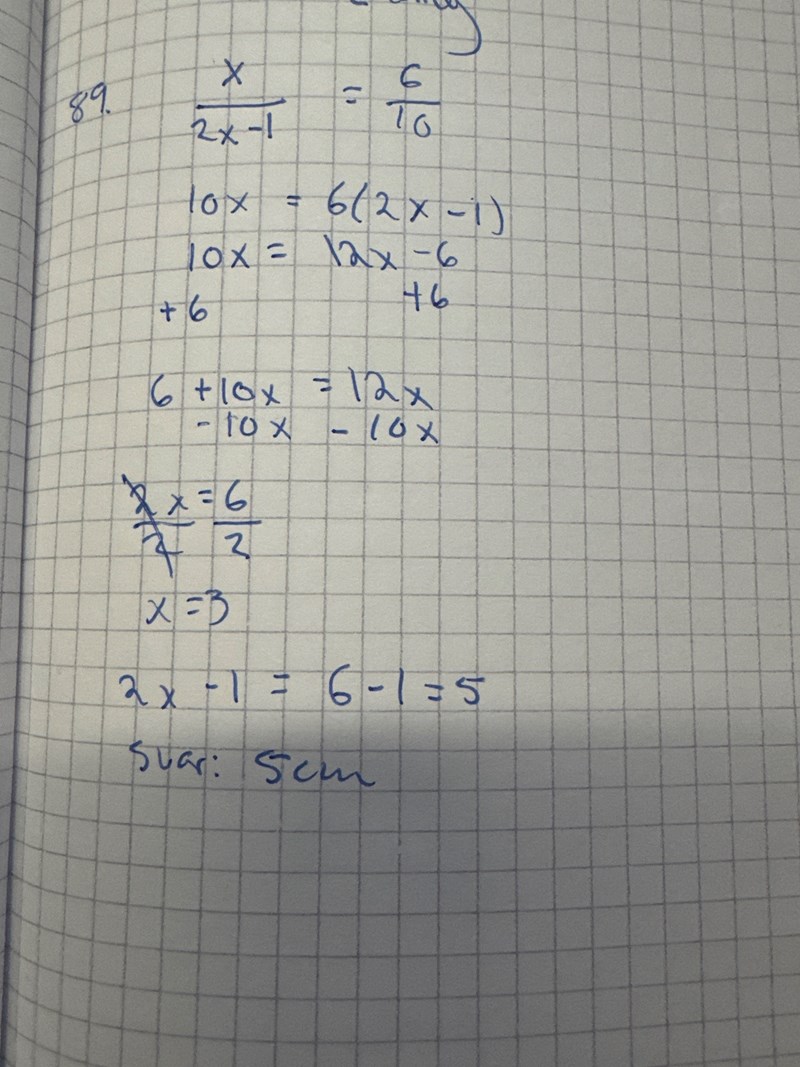 89. x/(2x-1) = 6/10
10x = 6(2x-1)
10x = 12x-6
+6 +6
6 +10x = 12x
-10x - 10x
2x/2 = 6/2
x = 3
2x -1 = 6-1 = 5
Svar: 5cm